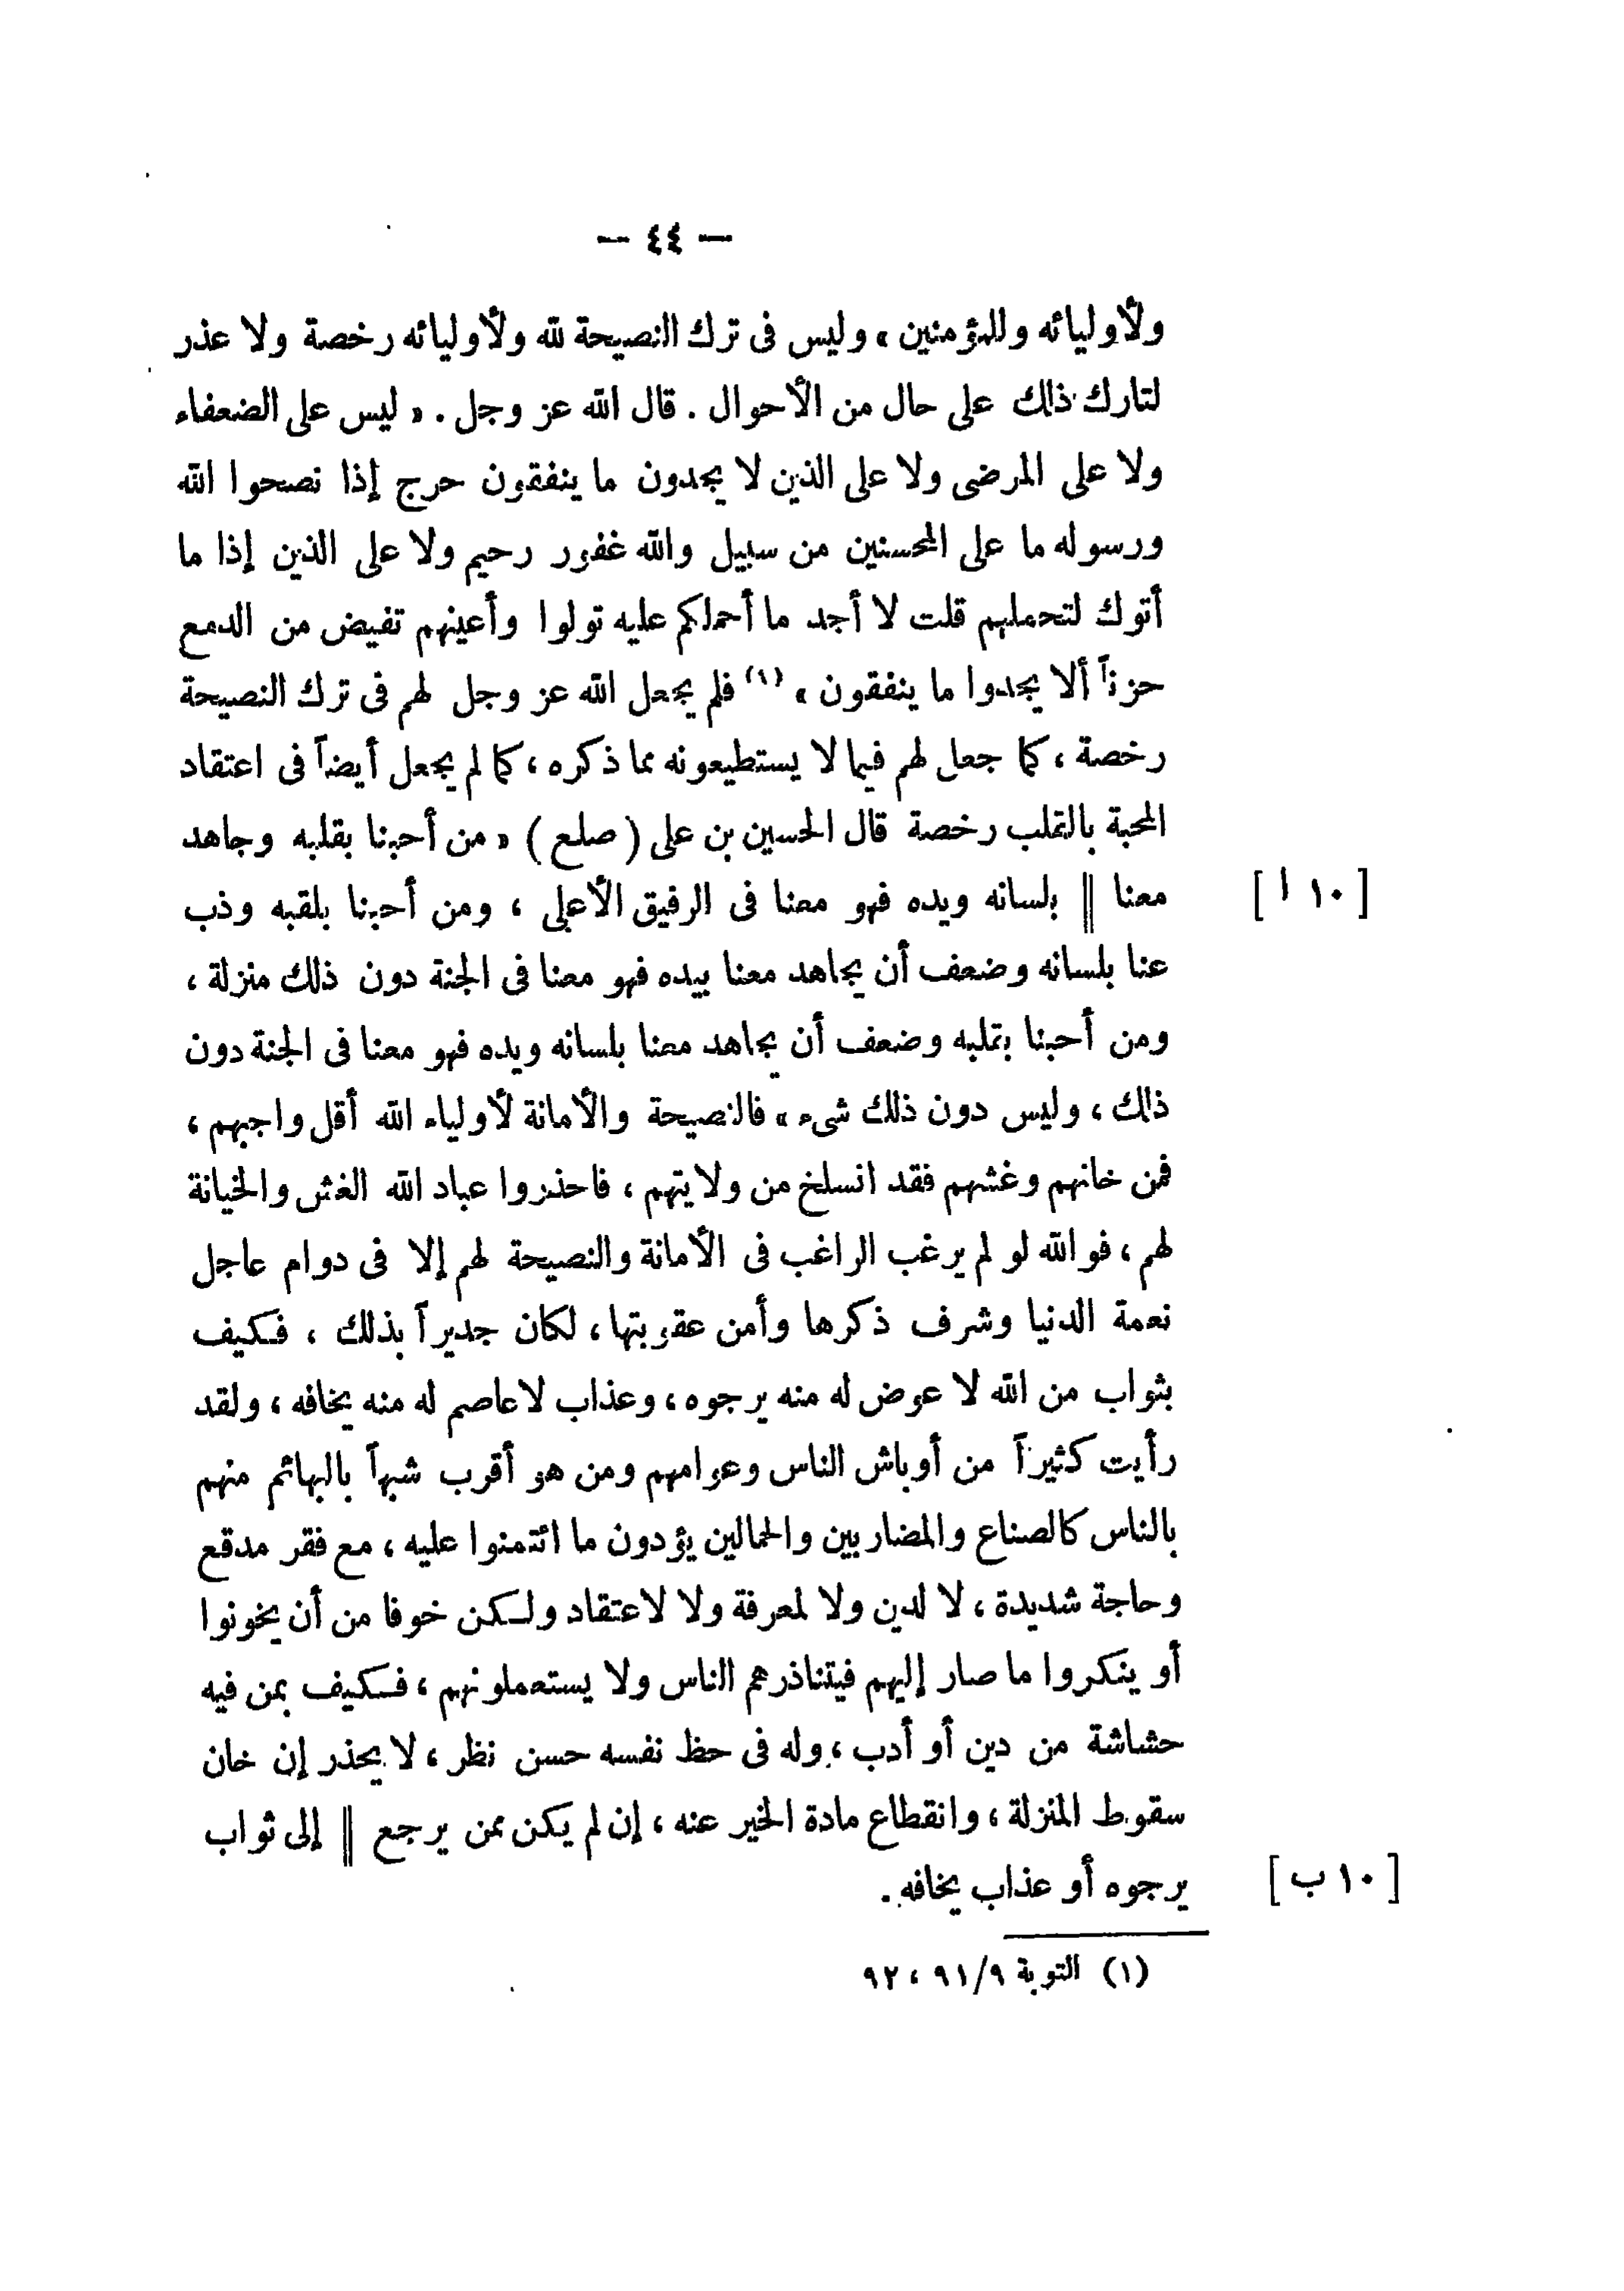 — ٤٤ —
ولأوليائه وللمؤمنين » وليس فى ترك النصيحة لله ولأوليائه رخصة ولا عذر
لتارك ذلك على حال من الأحوال . قال الله عز وجل . « ليس على الضعفاء
ولا على المرضى ولا على الذين لا يجدون ما ينفقون حرج إذا نصحوا الله
ورسوله ما على المحسنين من سبيل والله غفور رحيم ولا على الذين إذا ما
أتوك لتحملهم قلت لا أجد ما أحملكم عليه تولوا وأعينهم تفيض من الدمع
حزناً ألا يجدوا ما ينفقون » (١) فلم يجعل الله عز وجل لهم فى ترك النصيحة
رخصة ، كما جعل لهم فيما لا يستطيعونه مما ذكره ، كما لم يجعل أيضاً فى اعتقاد
المحبة بالقلب رخصة قال الحسين بن على ( صلع ) « من أحبنا بقلبه وجاهد
معنا || بلسانه ويده فهو معنا فى الرفيق الأعلى ، ومن أحبنا بلقبه وذب [ ١٠ ا ]
عنا بلسانه وضعف أن يجاهد معنا بيده فهو معنا فى الجنة دون ذلك منزلة ،
ومن أحبنا بقلبه وضعف أن يجاهد معنا بلسانه ويده فهو معنا فى الجنة دون
ذلك ، وليس دون ذلك شىء » فالنصيحة والأمانة لأولياء الله أقل واجبهم ،
فمن خانهم وغشهم فقد انسلخ من ولايتهم ، فاحذروا عباد الله الغش والخيانة
لهم ، فوالله لو لم يرغب الراغب فى الأمانة والنصيحة لهم إلا فى دوام عاجل
نعمة الدنيا وشرف ذكرها وأمن عقوبتها ، لكان جديراً بذلك ، فكيف
بثواب من الله لا عوض له منه يرجوه ، وعذاب لا عاصم له منه يخافه ، ولقد
رأيت كثيراً من أوباش الناس وعوامهم ومن هو أقرب شبهاً بالبهائم منهم
بالناس كالصناع والمضاربين والحمالين يؤدون ما ائتمنوا عليه ، مع فقر مدقع
وحاجة شديدة ، لا لدين ولا لمعرفة ولا لاعتقاد ولكن خوفا من أن يخونوا
أو ينكروا ما صار إليهم فيتناذرهم الناس ولا يستعملونهم ، فكيف بمن فيه
حشاشة من دين أو أدب ، وله فى حظ نفسه حسن نظر ، لا يحذر إن خان
سقوط المنزلة ، وانقطاع مادة الخير عنه ، إن لم يكن ممن يرجع || إلى ثواب
يرجوه أو عذاب يخافه . [ ١٠ ب ]
(١) التوبة ٩١/٩ ، ٩٢